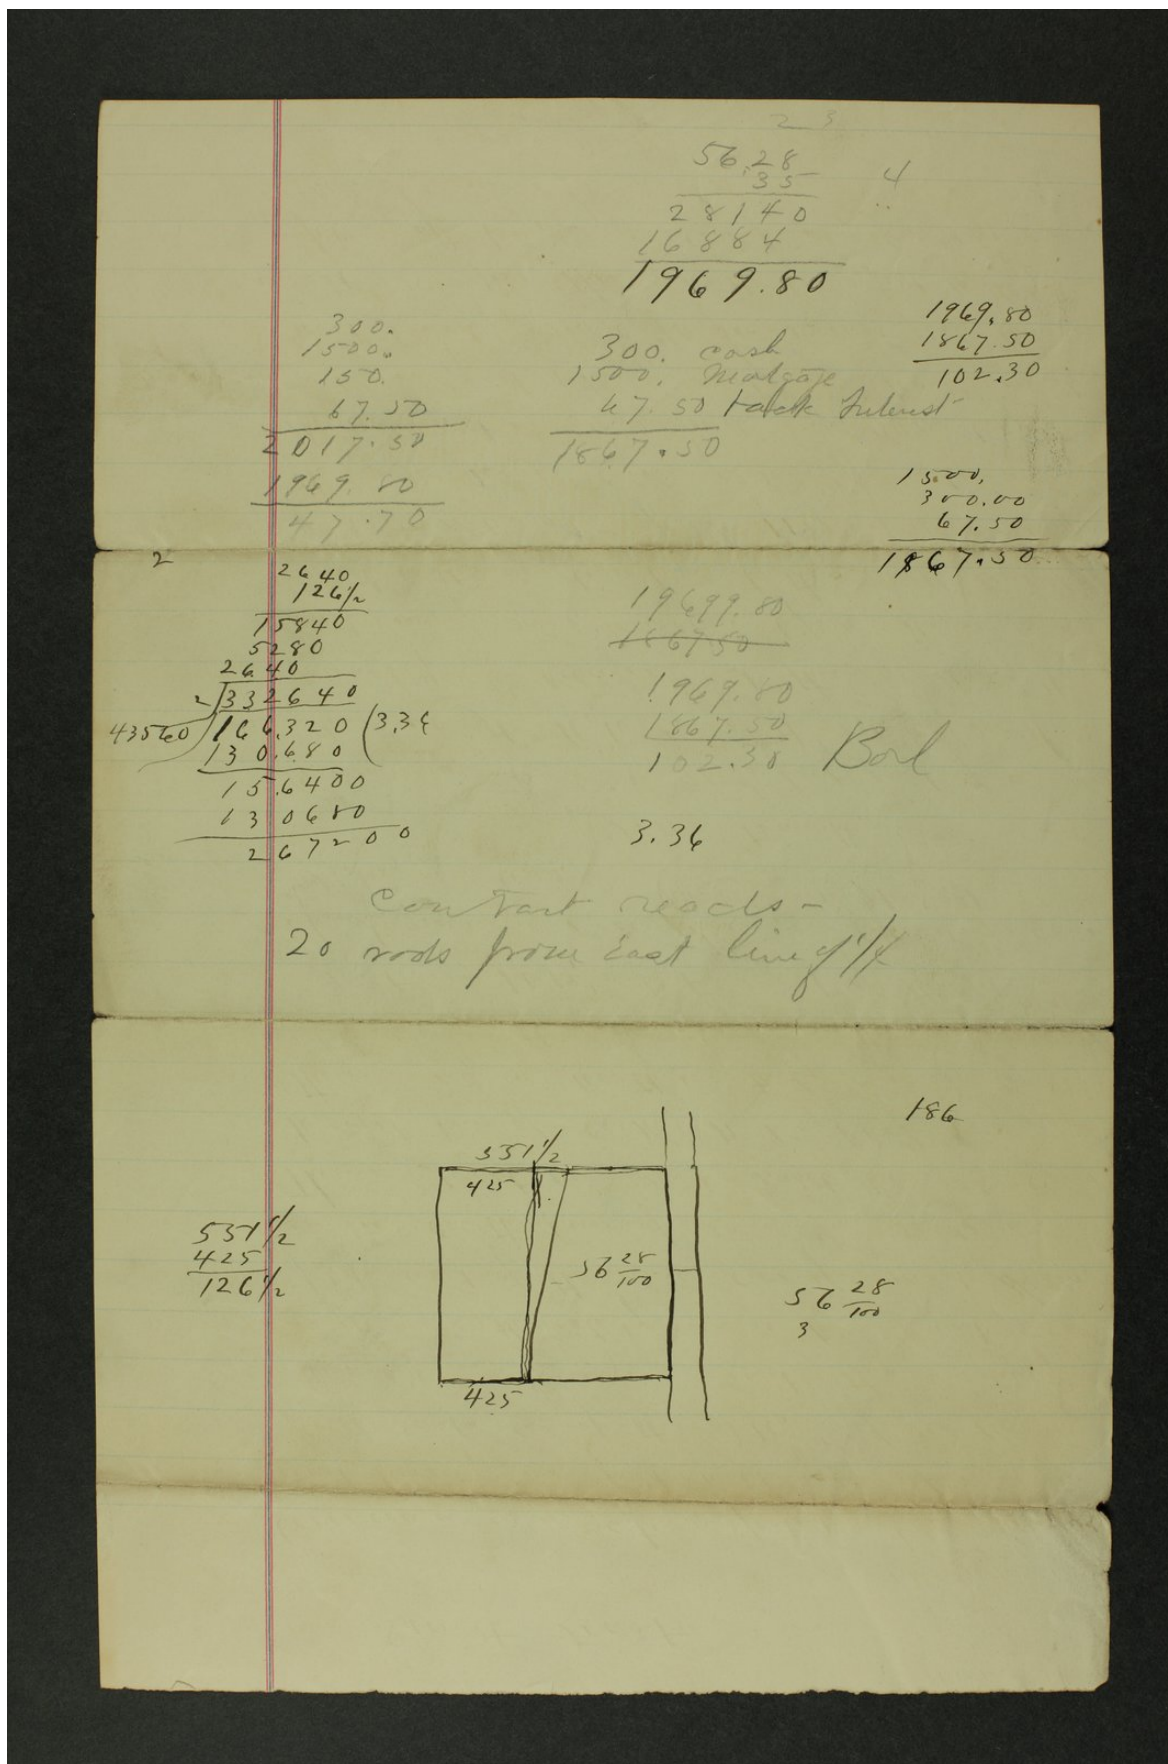 56.28
35
4
28140
16884
1969.80
300.
1500.
150.
67.50
2017.50
1969.80
47.70
300. cash
1500. Mortgage
67.50 back Interest
1867.50
1969.80
1867.50
102.30
1500.
300.00
67.50
1867.50
2
2640
126 1/2
15840
5280
2640
2 332640
43560 166,320 (3.36
130,680
15,6400
130680
267200
19699.80
1867.50
1969.80
1867.50
102.30 Bal
3.36
contract reads -
20 rods from East line of 1/4
186
551 1/2
425
56 28/100
425
551 1/2
425
126 1/2
56 28/100
3